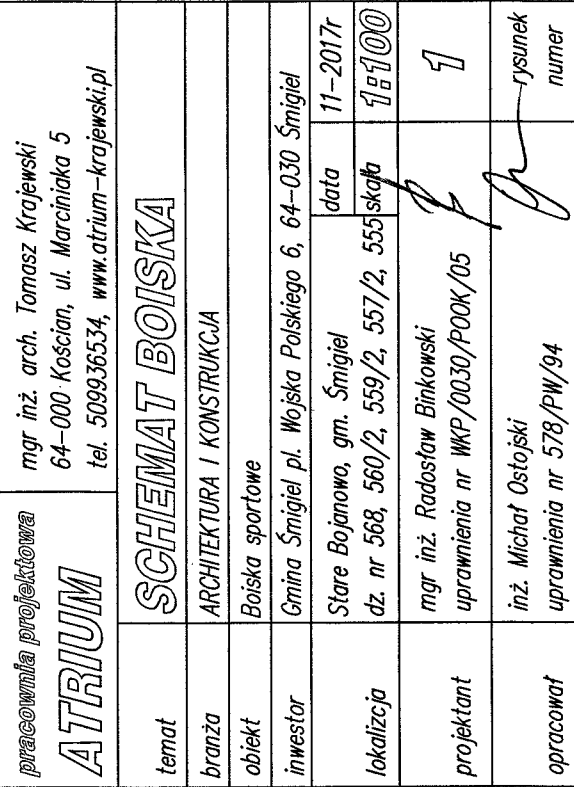 pracownia projektowa
ATRIUM
mgr inż. arch. Tomasz Krajewski
64-000 Kościan, ul. Marciniaka 5
tel. 509936534, www.atrium-krajewski.pl
temat
SCHEMAT BOISKA
branża
ARCHITEKTURA I KONSTRUKCJA
obiekt
Boiska sportowe
inwestor
Gmina Śmigiel pl. Wojska Polskiego 6, 64-030 Śmigiel
lokalizcja
Stare Bojanowo, gm. Śmigiel
dz. nr 568, 560/2, 559/2, 557/2, 555
data
11-2017r
skala
1:100
projektant
mgr inż. Radosław Binkowski
uprawnienia nr WKP/0030/POOK/05
1
opracował
inż. Michał Ostojski
uprawnienia nr 578/PW/94
rysunek
numer